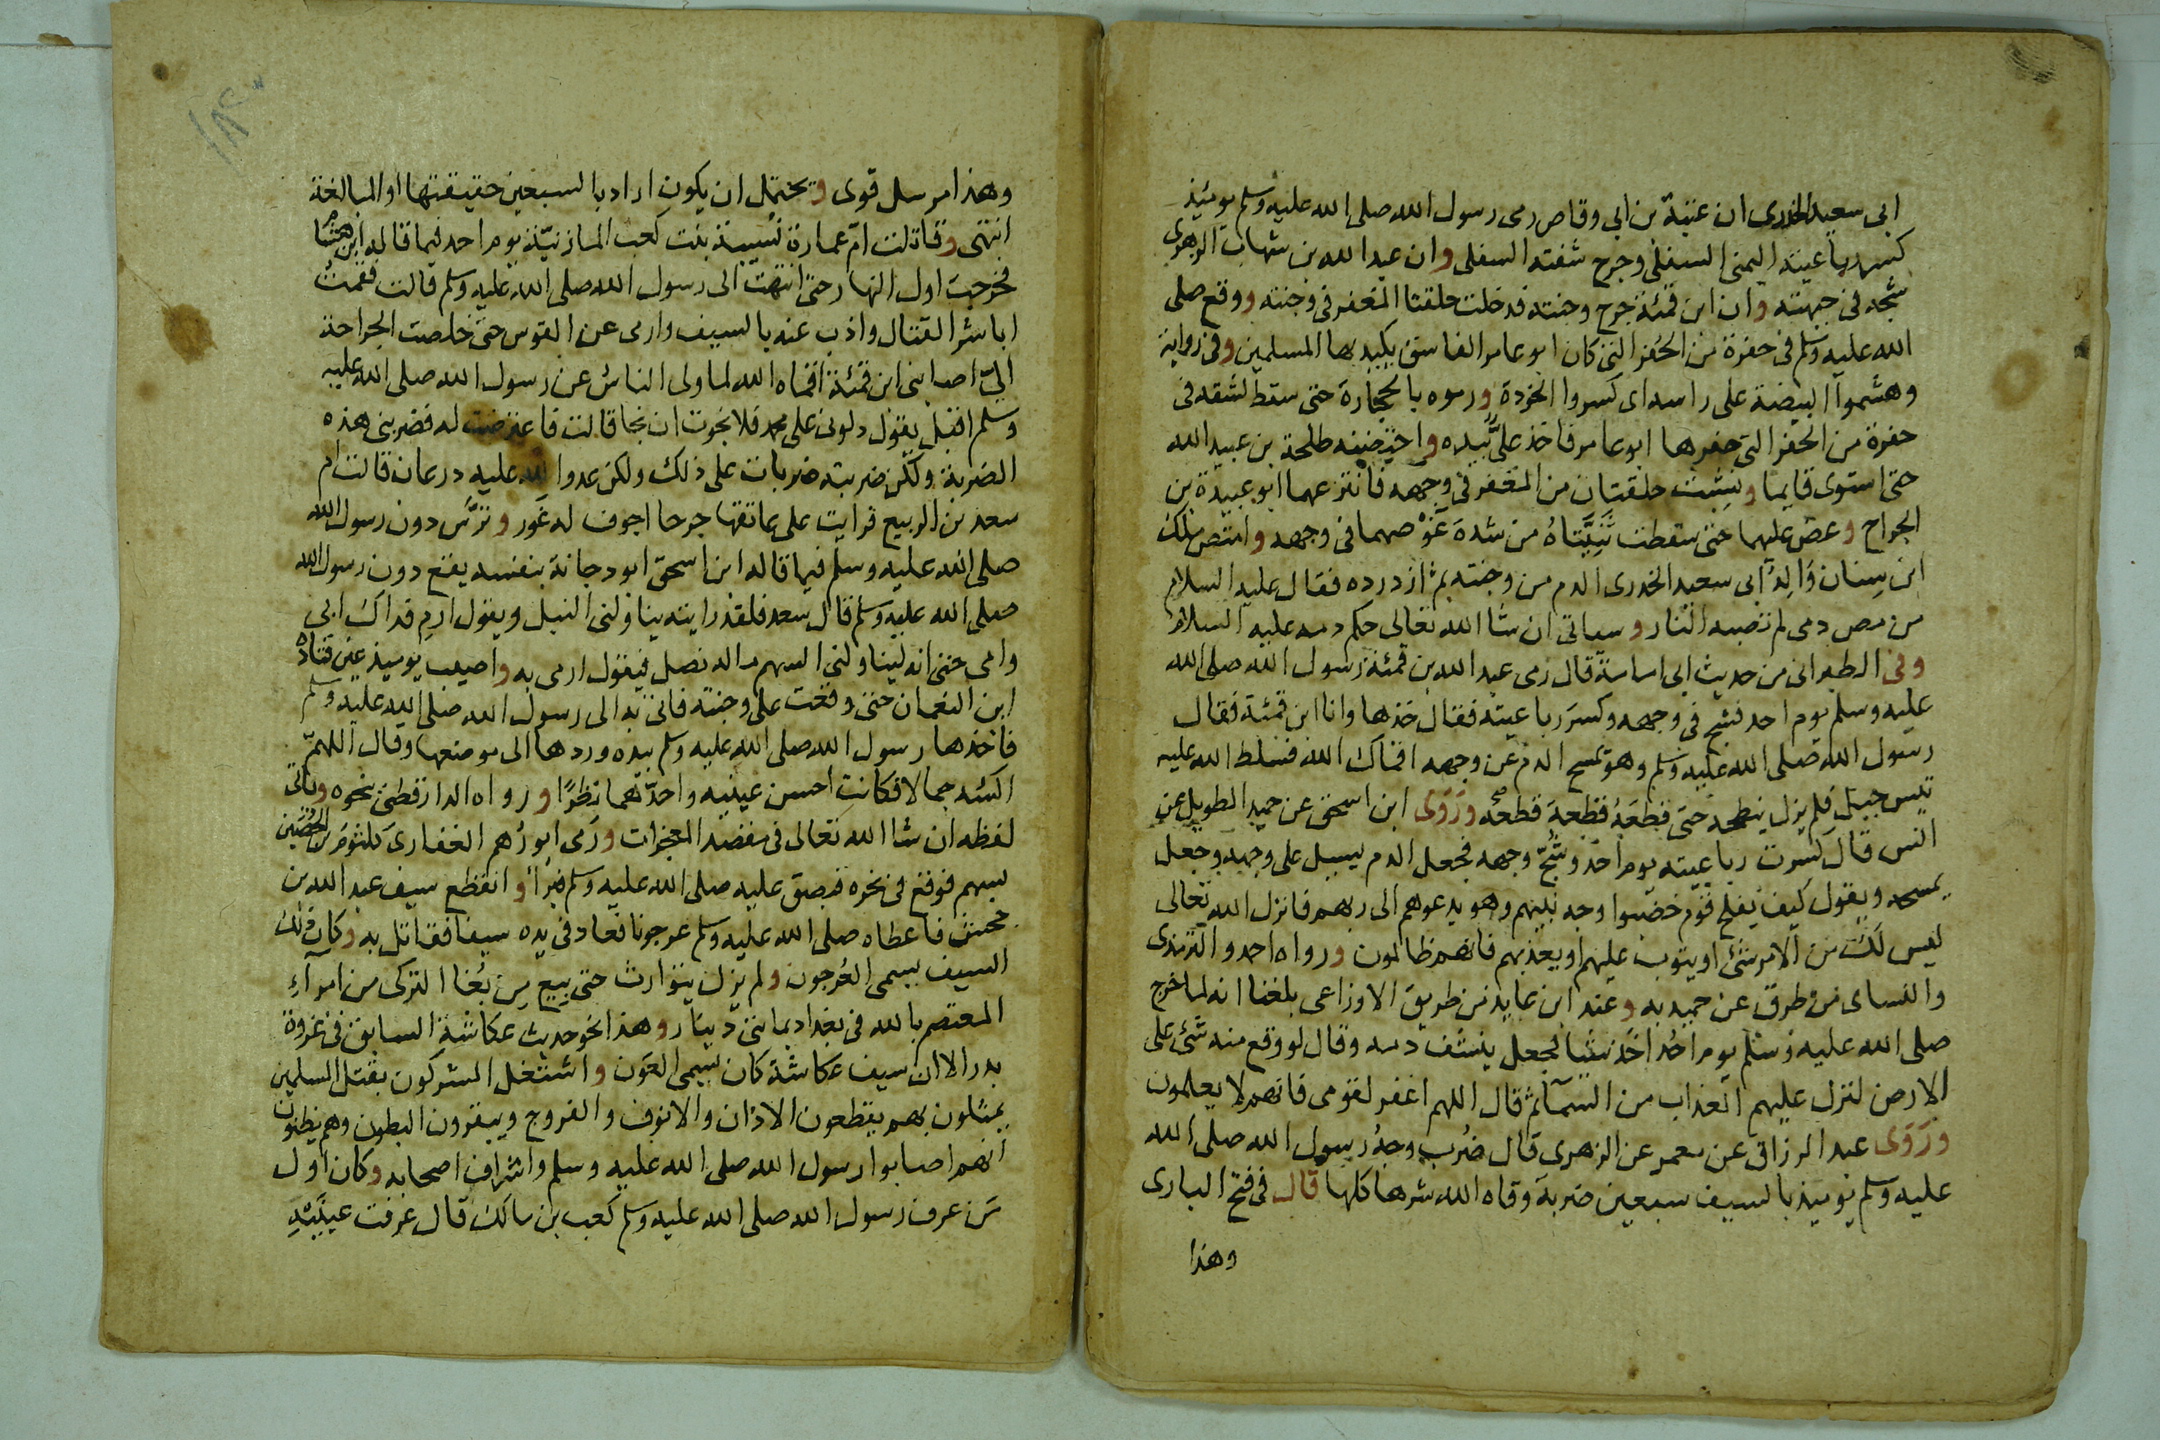 ابى سعيد الخدرى ان عتبة بن ابى وقاص رمى رسول الله صلى الله عليه وسلم يومئيذ
كسر رباعيته اليمنى السفلى وجرح شفته السفلى وان عبد الله بن شهاب الزهرى
شجه فى جبهته وان ابن قمئة جرح وجنته فدخلت حلقتا المغفر فى وجنته ووقع صلى
الله عليه وسلم فى حفرة من الحفر التى كان ابو عامر الفاسق يكيد بها المسلمين وفى رواية
وهشموا البيضة على راسه اى كسروا الخوذة ورموه بالحجارة حتى سقط لشقه فى
حفرة من الحفر التى حفرها ابو عامر فاخذ على بيده واحتضنه طلحة بن عبيد الله
حتى استوى قايما ونشبت حلقتان من المغفر فى وجهه فانتزعهما ابو عبيدة بن
الجراح وعض عليهما حتى سقطت ثنيتاه من شدة غوصهما فى وجهه وامتص ملك
ابن سنان والد ابى سعيد الخدرى الدم من وجنته ثم ازدرده فقال عليه السلام
من مص دمى لم تصبه النار وسياتى ان شا الله تعالى حكم دمه عليه السلام
وفى الطبرانى من حديث ابى امامة قال رمى عبد الله بن قمئة رسول الله صلى الله
عليه وسلم يوم احد فشج فى وجهه وكسر رباعيته فقال خذها وانا ابن قمئة فقال
رسول الله صلى الله عليه وسلم وهو يمسح الدم عن وجهه اقماك الله فسلط الله عليه
تيس جبل فلم يزل ينطحه حتى قطعه قطعة قطعة وروى ابن اسحق عن حميد الطويل عن
انس قال كسرت رباعيته يوم احد وشج وجهه فجعل الدم يسيل على وجهه وجعل
يمسحه ويقول كيف يفلح قوم خضبوا وجه نبيهم وهو يدعوهم الى ربهم فانزل الله تعالى
ليس لك من الامر شئ او يتوب عليهم او يعذبهم فانهم ظالمون ورواه احمد والترمذى
والنساى من طرق عن حميد به وعند ابن عايد من طريق الاوزاعى بلغنا انه لما خرج
صلى الله عليه وسلم يوم احد اخذ شيا فجعل ينشف دمه وقال لو وقع منه شئ على
الارض لنزل عليهم العذاب من السمآ ثم قال اللهم اغفر لقومى فانهم لا يعلمون
وروى عبد الرزاق عن معمر عن الزهرى قال ضرب وجه رسول الله صلى الله
عليه وسلم يوميذ بالسيف سبعين ضربة وقاه الله شرها كلها قال فى فتح البارى
وهذا
وهذا مرسل قوى ويحتمل ان يكون اراد بالسبعين حقيقتها او المبالغة
انتهى وقاتلت ام عمارة نسيبة بنت كعب المازنية يوم احد فيما قاله ابن هشا
فخرجت اول النهار حتى انتهت الى رسول الله صلى الله عليه وسلم قالت فقمت
اباشر القتال واذب عنه بالسيف وارمى عن القوس حتى خلصت الجراحة
الى اصابنى ابن قمئة اقماه الله لما ولى الناس عن رسول الله صلى الله عليه
وسلم اقبل يقول دلونى على محمد فلا نجوت ان نجا قالت فاعترضت له فضربنى هذه
الضربة ولكن ضربته ضربات على ذلك ولكن عدو الله عليه درعان قالت ام
سعد بن الربيع فرايت على عاتقها جرحا اجوف له غور وترس دون رسول الله
صلى الله عليه وسلم فيما قاله ابن اسحق ابو دجانة بنفسه يقع دون رسول الله
صلى الله عليه وسلم قال سعد فلقد رايته يناولنى النبل ويقول ارم فداك ابى
وامى حتى انه ليناولنى السهم ماله نصل فيقول ارمى به واصيب يوميذ عين قتادة
ابن النعمان حتى وقعت على وجنته فاتى به الى رسول الله صلى الله عليه وسلم
فاخذها رسول الله صلى الله عليه وسلم بيده وردها الى موضعها وقال اللهم
اكسه جمالا فكانت احسن عينيه واحدهما نظرا ورواه الدارقطنى بنحوه وياتى
لفظه ان شا الله تعالى فى مقصد المعجزات ورمى ابو رهم الغفارى كلثوم بن الحصين
بسهم فوقع فى نحره فبصق عليه صلى الله عليه وسلم فبرأ وانقطع سيف عبد الله بن
جحش فاعطاه صلى الله عليه وسلم عرجونا فعاد فى يده سيفا فقاتل به وكان ذلك
السيف يسمى العرجون ولم يزل يتوارث حتى بيع من بغا التركى من امرآء
المعتصم بالله فى بغداد بمايتى دينار وهذا نحو حديث عكاشة السابق فى غزوة
بدر الا ان سيف عكاشة كان يسمى العون واشتغل المشركون بقتل المسلمين
يمثلون بهم يقطعون الاذان والانوف والفروج ويبقرون البطون وهم يظنون
انهم اصابوا رسول الله صلى الله عليه وسلم واشراف اصحابه وكان اول
من عرف رسول الله صلى الله عليه وسلم كعب بن مالك قال عرفت عينيه